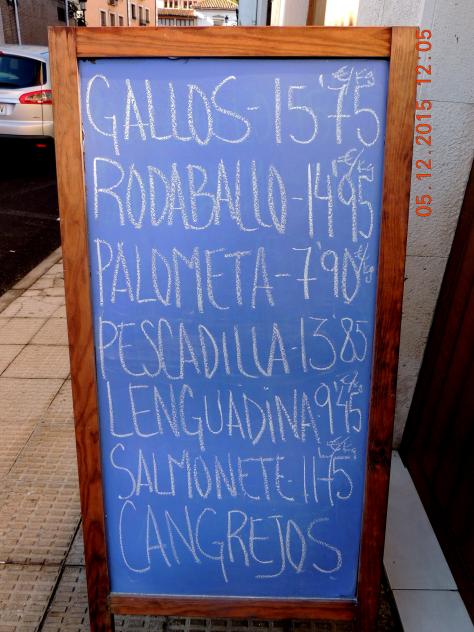 GALLOS - 15'75 €/kg
RODABALLO - 14'95 €/kg
PALOMETA - 7'90 €/kg
PESCADILLA - 13'85
LENGUADINA 9'45 €/kg
SALMONETE - 11'75 €/kg
CANGREJOS
05.12.2015 12:05